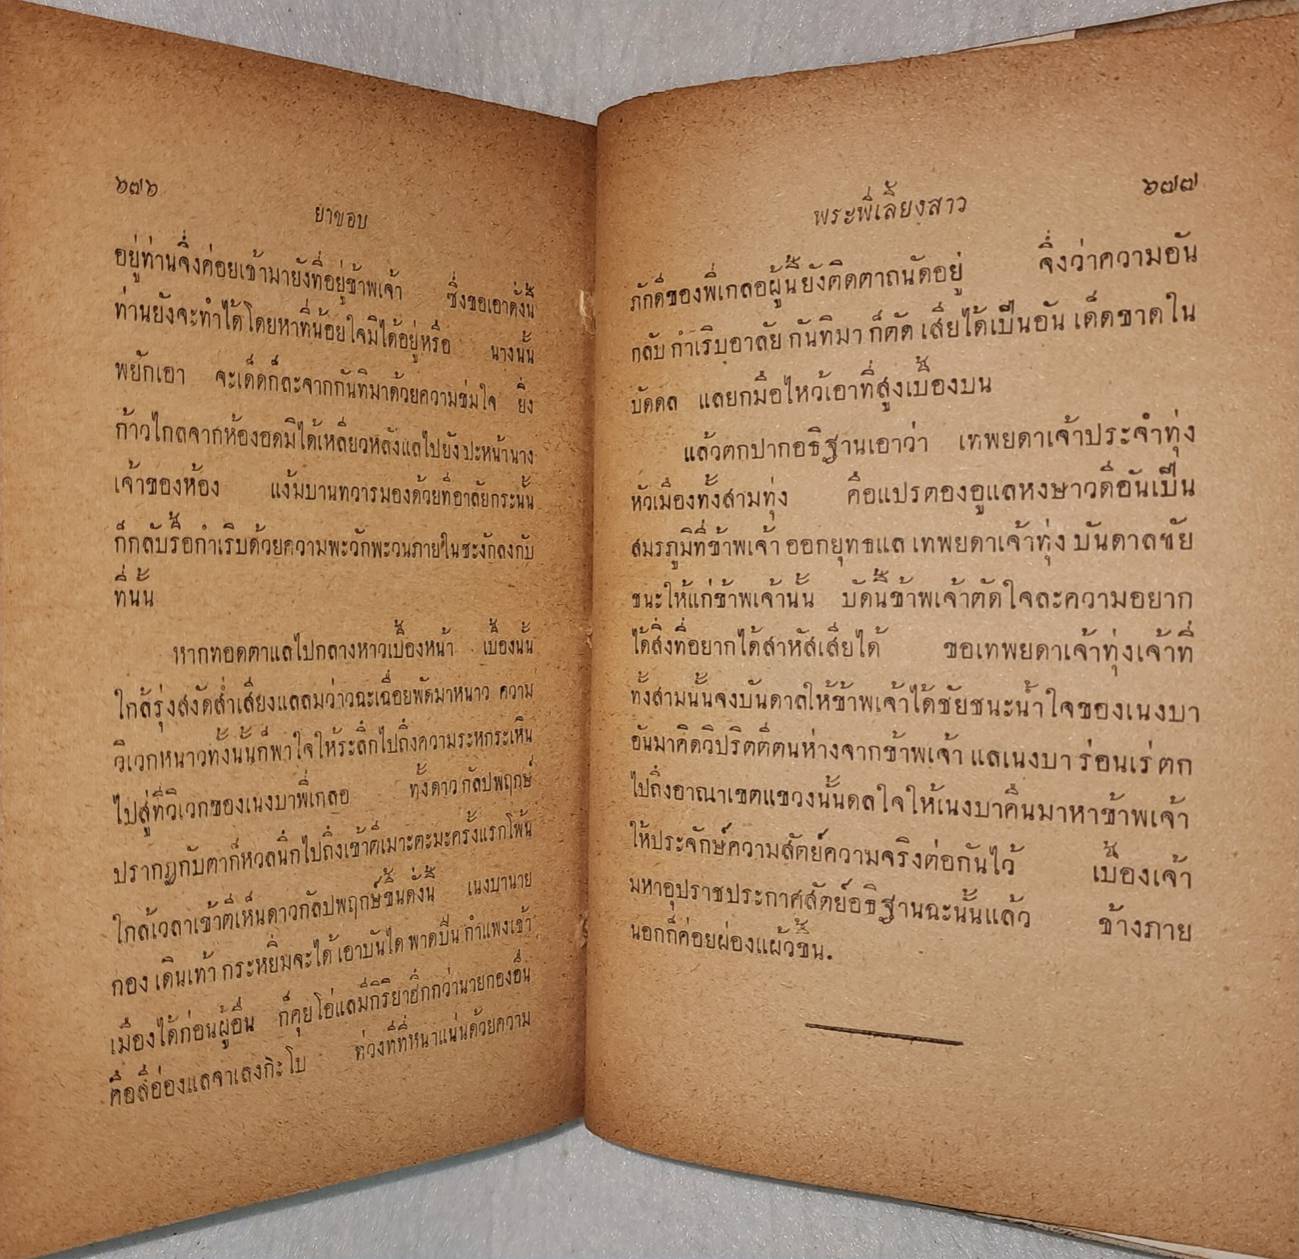 ๖๗๖
ยาขอบ
อยู่ท่านจึ่งค่อยเข้ามายังที่อยู่ข้าพเจ้า ซึ่งขอเอาดั่งนี้
ท่านยังจะทำได้โดยหาที่น้อยใจมิได้อยู่หรือ นางนั้น
พยักเอา จะเด็ดก็ละจากกันทิมาด้วยความข่มใจ ยิ่ง
ก้าวไกลจากห้องอดมิได้เหลียวหลังแลไปยังปะหน้านาง
เจ้าของห้อง แง้มบานทวารมองด้วยที่อาลัยกระนั้น
ก็กลับรื้อกำเริบด้วยความพะวักพะวนภายในชะงักลงกับ
ที่นั้น
หากทอดตาแลไปกลางหาวเบื้องหน้า เบื้องนั้น
ใกล้รุ่งสงัดส่ำเสียงแลลมว่าวฉะเฉื่อยพัดมาหนาว ความ
วิเวกหนาวทั้งนั้นก็พาใจให้ระลึกไปถึงความระหกระเหิน
ไปสู่ที่วิเวกของเนงบาพี่เกลอ ทั้งดาวกัลปพฤกษ์
ปรากฏกับตาก็หวลนึกไปถึงเข้าตีเมาะตะมะครั้งแรกโพ้น
ใกล้เวลาเข้าตีเห็นดาวกัลปพฤกษ์ขึ้นดั่งนี้ เนงบานาย
กอง เดินเท้า กระหยิ่มจะได้ เอาบันได พาดปีน กำแพงเข้า
เมืองได้ก่อนผู้อื่น ก็คุยโอ่แลมีกิริยาฮึกกว่านายกองอื่น
คือสีอ่องแลจาเลงกะโบ ท่วงทีที่หนาแน่นด้วยความ
พระพี่เลี้ยงสาว
๖๗๗
ภักดีของพี่เกลอผู้นี้ยังติดตาถนัดอยู่ จึ่งว่าความอัน
กลับ กำเริบอาลัย กันทิมา ก็ตัด เสียได้เป็นอัน เด็ดขาดใน
บัดดล แลยกมือไหว้เอาที่สูงเบื้องบน
แล้วตกปากอธิฐานเอาว่า เทพยดาเจ้าประจำทุ่ง
หัวเมืองทั้งสามทุ่ง คือแปรตองอูแลหงษาวดีอันเป็น
สมรภูมิที่ข้าพเจ้า ออกยุทธแล เทพยดาเจ้าทุ่ง บันดาลชัย
ชนะให้แก่ข้าพเจ้านั้น บัดนี้ข้าพเจ้าตัดใจละความอยาก
ได้สิ่งที่อยากได้สาหัสเสียได้ ขอเทพยดาเจ้าทุ่งเจ้าที่
ทั้งสามนั้นจงบันดาลให้ข้าพเจ้าได้ชัยชนะน้ำใจของเนงบา
อันมาคิดวิปริตตีตนห่างจากข้าพเจ้า แลเนงบา ร่อนเร่ ตก
ไปถึงอาณาเขตแขวงนั้นดลใจให้เนงบาคืนมาหาข้าพเจ้า
ให้ประจักษ์ความสัตย์ความจริงต่อกันไว้ เบื้องเจ้า
มหาอุปราชประกาศสัตย์อธิฐานฉะนั้นแล้ว ข้างภาย
นอกก็ค่อยผ่องแผ้วขึ้น.